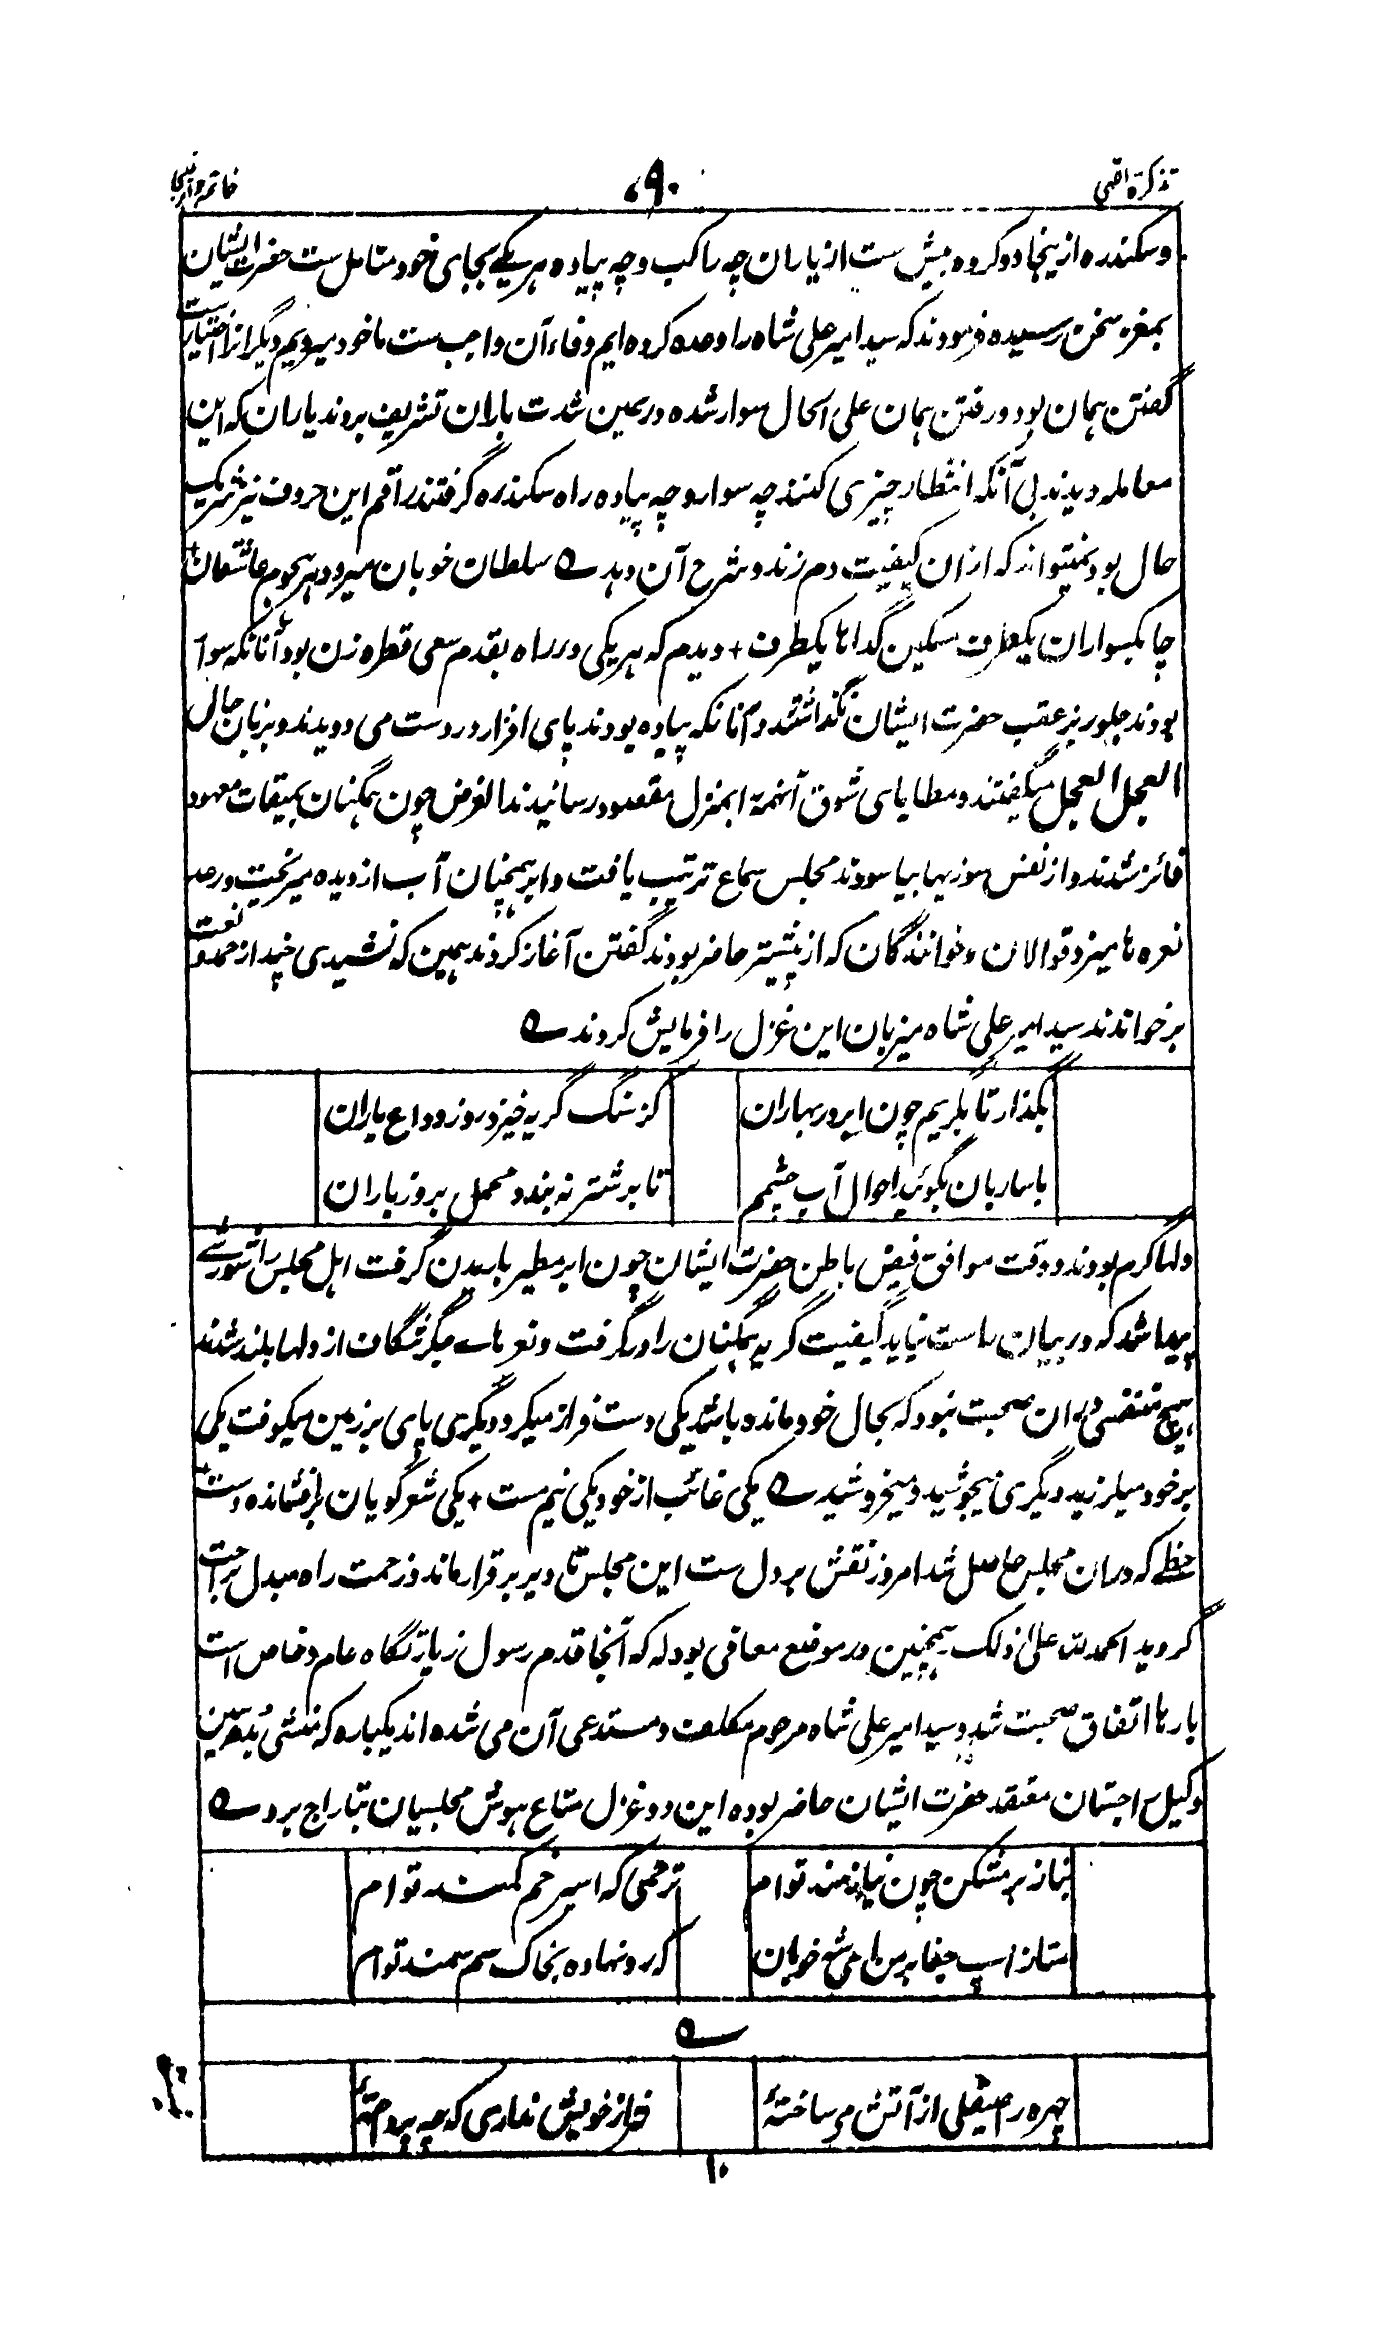 تذکرۃ اقصی
۹۰
خاتمہ
و سکندره از ینجا دو کروه بیش ست از یاران چه راکب و چه پیاده هر یکے بجای خود متامل ست حضرت ایشان
بمغز سخن رسیده فرمودند که سید امیر علی شاه را وعده کرده ایم وفاء آن واجب ست ما خود میرویم دیگرانرا اختیار ست
گفتن همان بود و رفتن همان علی الحال سوار شده در همین شدت باران تشریف بردند یاران که این
معامله دیدند بی آنکه انتظار چیزی کنند چه سوار و چه پیاده راه سکندره گرفتند راقم این حروف نیز شریک
حال بود نمیتواند که از ان کیفیت دم زند و شرح آن دهد ے سلطان خوبان میرود هر سو هجوم عاشقان +
چابکسواران یکطرف مسکین گداها یکطرف + دیدم که هر یکی در راه بقدم سعی قطره زن بود آنانکه سوار
بودند جلو ریز عقب حضرت ایشان نگذاشتند و آنانکه پیاده بودند پای افزار در دست می دویدند و بزبان حال
العجل العجل میگفتند و مطایای شوق آنهمه را بمنزل مقصود رسانیدند الغرض چون همگنان بمیقات معهود
فائز شدند و از نفس سوزیها بیاسودند مجلس سماع ترتیب یافت و ابر همچنان آب از دیده میریخت و رعد
نعره ها میزد قوالان و خوانندگان که از پیشتر حاضر بودند گفتن آغاز کردند همین که نشیدی چند از حمد و نعت
برخواندند سید امیر علی شاه میزبان این غزل را فرمایش کردند ے
بگذار تا بگریم چون ابر در بهاران
کز سنگ گریه خیزد روز وداع یاران
با ساربان بگوئید احوال آب چشمم
تا بر شتر نه بندد محمل بروز باران
دلها گرم بودند و وقت موافق فیض باطن حضرت ایشان چون ابر مطیر باریدن گرفت اهل مجلس را شورشے
پیدا شد که در بیان راست نیاید کیفیت گریه همگنان را در گرفت و نعرهاے جگر شگاف از دلها بلند شدند
هیچ متنفسی در ان صحبت نبود که بحال خود مانده باشد یکی دست فراز میکرد دیگری پای بر زمین میکوفت یکی
بر خود میلرزید دیگری میجوشید و میخروشید ے یکی غائب از خود یکی نیم مست + یکی شعر گویان بر افشانده دست +
حظے که در ان مجلس حاصل شد امروز نقش بر دل ست این مجلس تا دیر برقرار ماند و زحمت راه مبدل براحت
گردید الحمد لله علی ذلک همچنین در موضع معافی بودله که آنجا قدم رسول زیارتگاه عام و خاص است
بارها اتفاق صحبت شد و سید امیر علی شاه مرحوم مکلف و مستدعی آن می شده اند یکباره که منشی
وکیل راجستان معتقد حضرت ایشان حاضر بوده این دو غزل متاع هوش مجلسیان بتاراج برد ے
نیاز بر مشکن چون نیازمند توام
ترحمی که اسیر خم کمند توام
متاز اسپ جفا بر من ای شه خوبان
که رو نهاده بخاک سم سمند توام
ے
چهره را صیقلی از آتش می ساختهٔ
خبر از خویش نداری که چه پرداختهٔ
۱۰